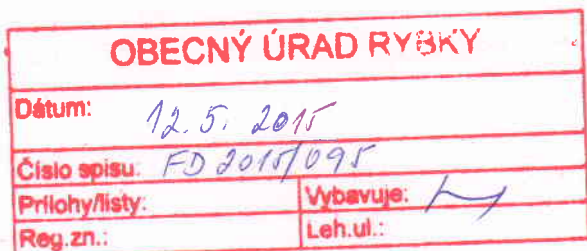 OBECNÝ ÚRAD RYBKY
Dátum: 12. 5. 2015
Číslo spisu: FD 2015/095
Prílohy/listy: Vybavuje:
Reg.zn.: Leh.ul.: